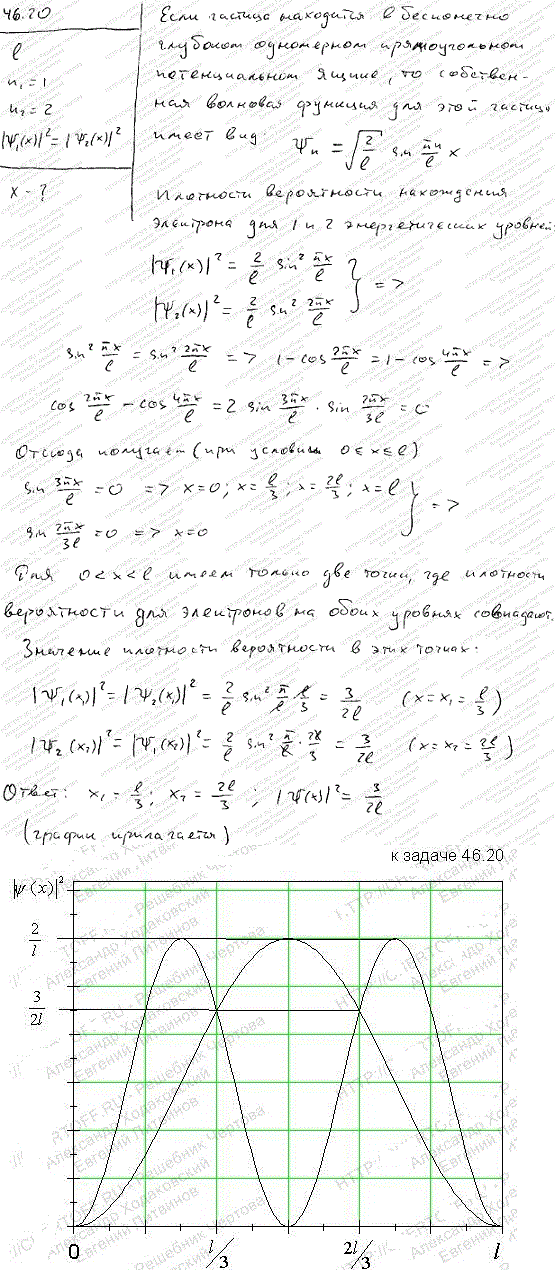 46.20
l
n₁ = 1
n₂ = 2
|Ψ₁(x)|² = |Ψ₂(x)|²
x - ?
Если частица находится в бесконечно
глубоком одномерном прямоугольном
потенциальном ящике, то собствен-
ная волновая функция для этой частицы
имеет вид Ψₙ = √(2/l) sin (πn/l) x
Плотности вероятности нахождения
электрона для 1 и 2 энергетических уровней:
|Ψ₁(x)|² = 2/l sin² πx/l
|Ψ₂(x)|² = 2/l sin² 2πx/l } =>
sin² πx/l = sin² 2πx/l => 1 - cos 2πx/l = 1 - cos 4πx/l =>
cos 2πx/l - cos 4πx/l = 2 sin 3πx/l · sin 2πx/3l = 0
Отсюда получает (при условии 0 ≤ x ≤ l)
sin 3πx/l = 0 => x = 0; x = l/3; x = 2l/3; x = l
sin 2πx/3l = 0 => x = 0 } =>
Для 0 < x < l имеем только две точки, где плотности
вероятности для электронов на обоих уровнях совпадают.
Значение плотности вероятности в этих точках:
|Ψ₁(x₁)|² = |Ψ₂(x₁)|² = 2/l sin² π/l · l/3 = 3/2l (x = x₁ = l/3)
|Ψ₂(x₂)|² = |Ψ₁(x₂)|² = 2/l sin² π/l · 2l/3 = 3/2l (x = x₂ = 2l/3)
Ответ: x₁ = l/3; x₂ = 2l/3; |Ψ(x)|² = 3/2l
(график прилагается)
к задаче 46.20
|ψ(x)|²
2/l
3/2l
0 l/3 2l/3 l